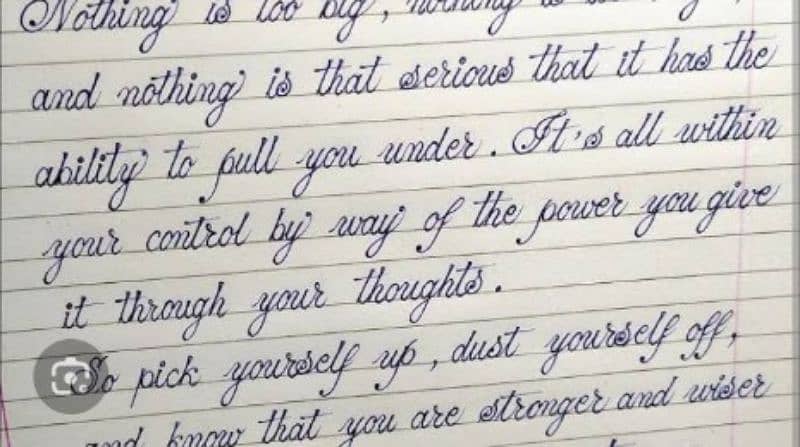 Nothing is too big, nothing is
and nothing is that serious that it has the
ability to pull you under. It's all within
your control by way of the power you give
it through your thoughts.
So pick yourself up, dust yourself off,
and know that you are stronger and wiser